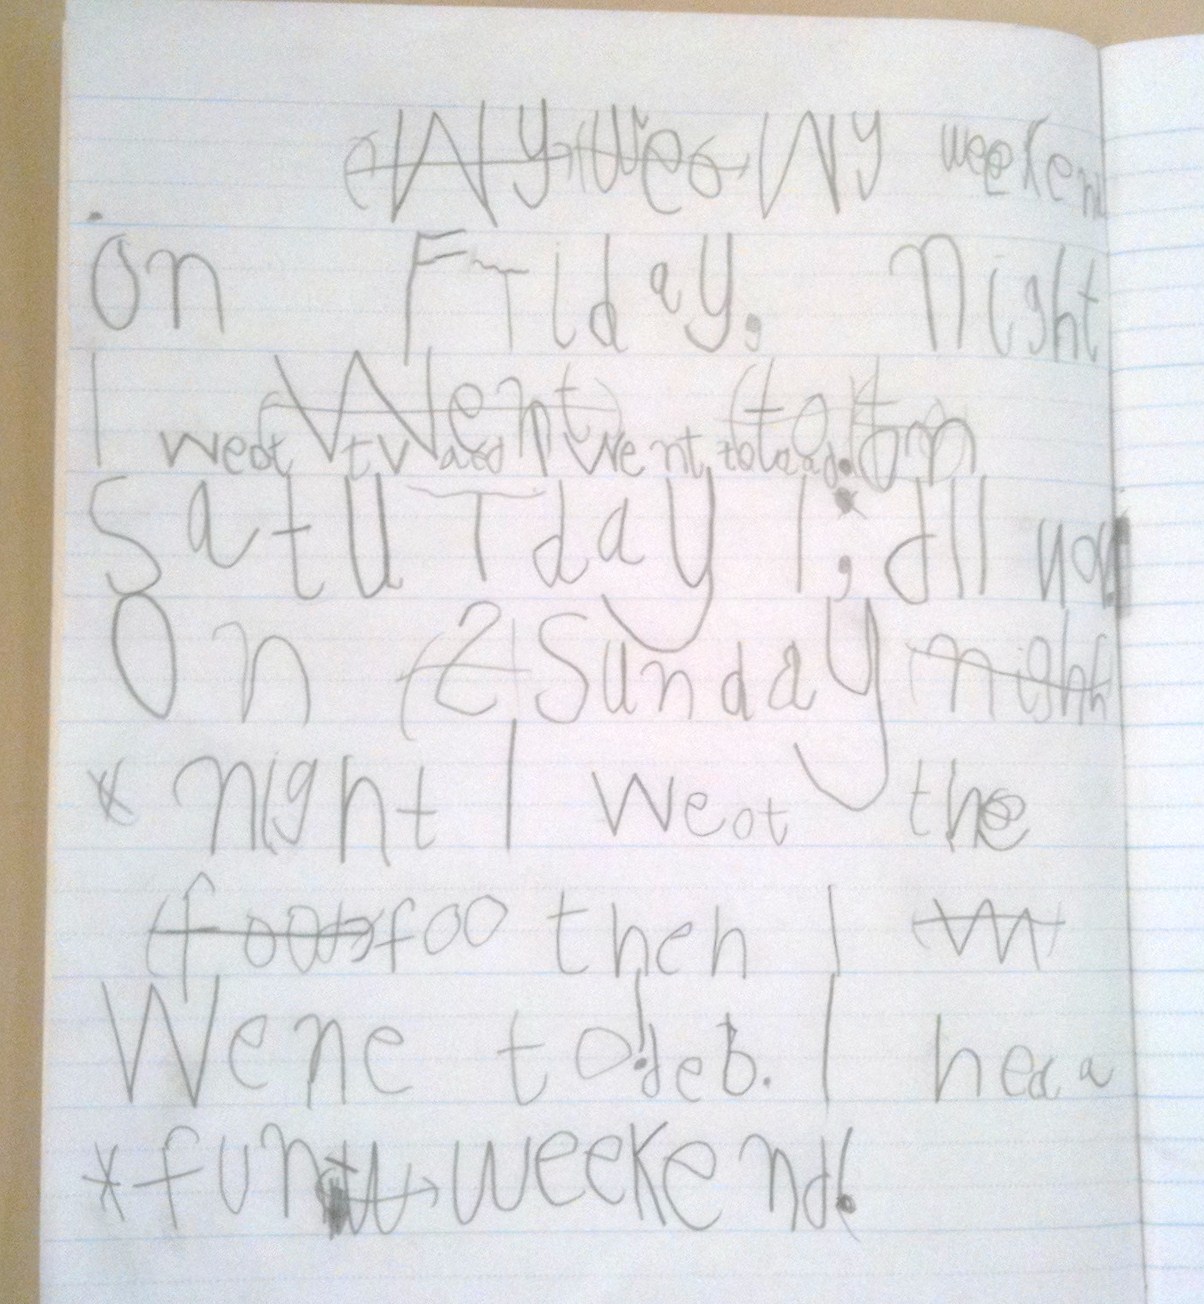 My weekend
On Friday. night
I weot tv and went to bed. On
Saturday I; all you
On Sunday
* night I weot the
foo then I
Wene to deb. I hed a
* fun weekend!